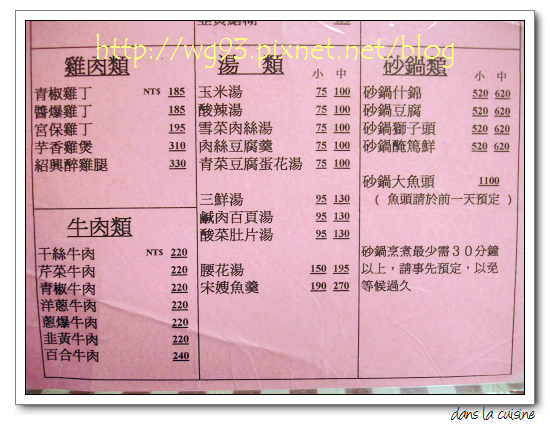 http://wg93.pixnet.net/blog
雞肉類
青椒雞丁 NT$ 185
醬爆雞丁 185
宮保雞丁 195
芋香雞煲 310
紹興醉雞腿 330
牛肉類
干絲牛肉 NT$ 220
芹菜牛肉 220
青椒牛肉 220
洋蔥牛肉 220
蔥爆牛肉 220
韭黃牛肉 220
百合牛肉 240
湯 類
小 中
玉米湯 75 100
酸辣湯 75 100
雪菜肉絲湯 75 100
肉絲豆腐羹 75 100
青菜豆腐蛋花湯 75 100
三鮮湯 95 130
鹹肉百頁湯 95 130
酸菜肚片湯 95 130
腰花湯 150 195
宋嫂魚羹 190 270
砂鍋類
小 中
砂鍋什錦 520 620
砂鍋豆腐 520 620
砂鍋獅子頭 520 620
砂鍋醃篤鮮 520 620
砂鍋大魚頭 1100
( 魚頭請於前一天預定 )
砂鍋烹煮最少需30分鐘
以上，請事先預定，以免
等候過久
dans la cuisine